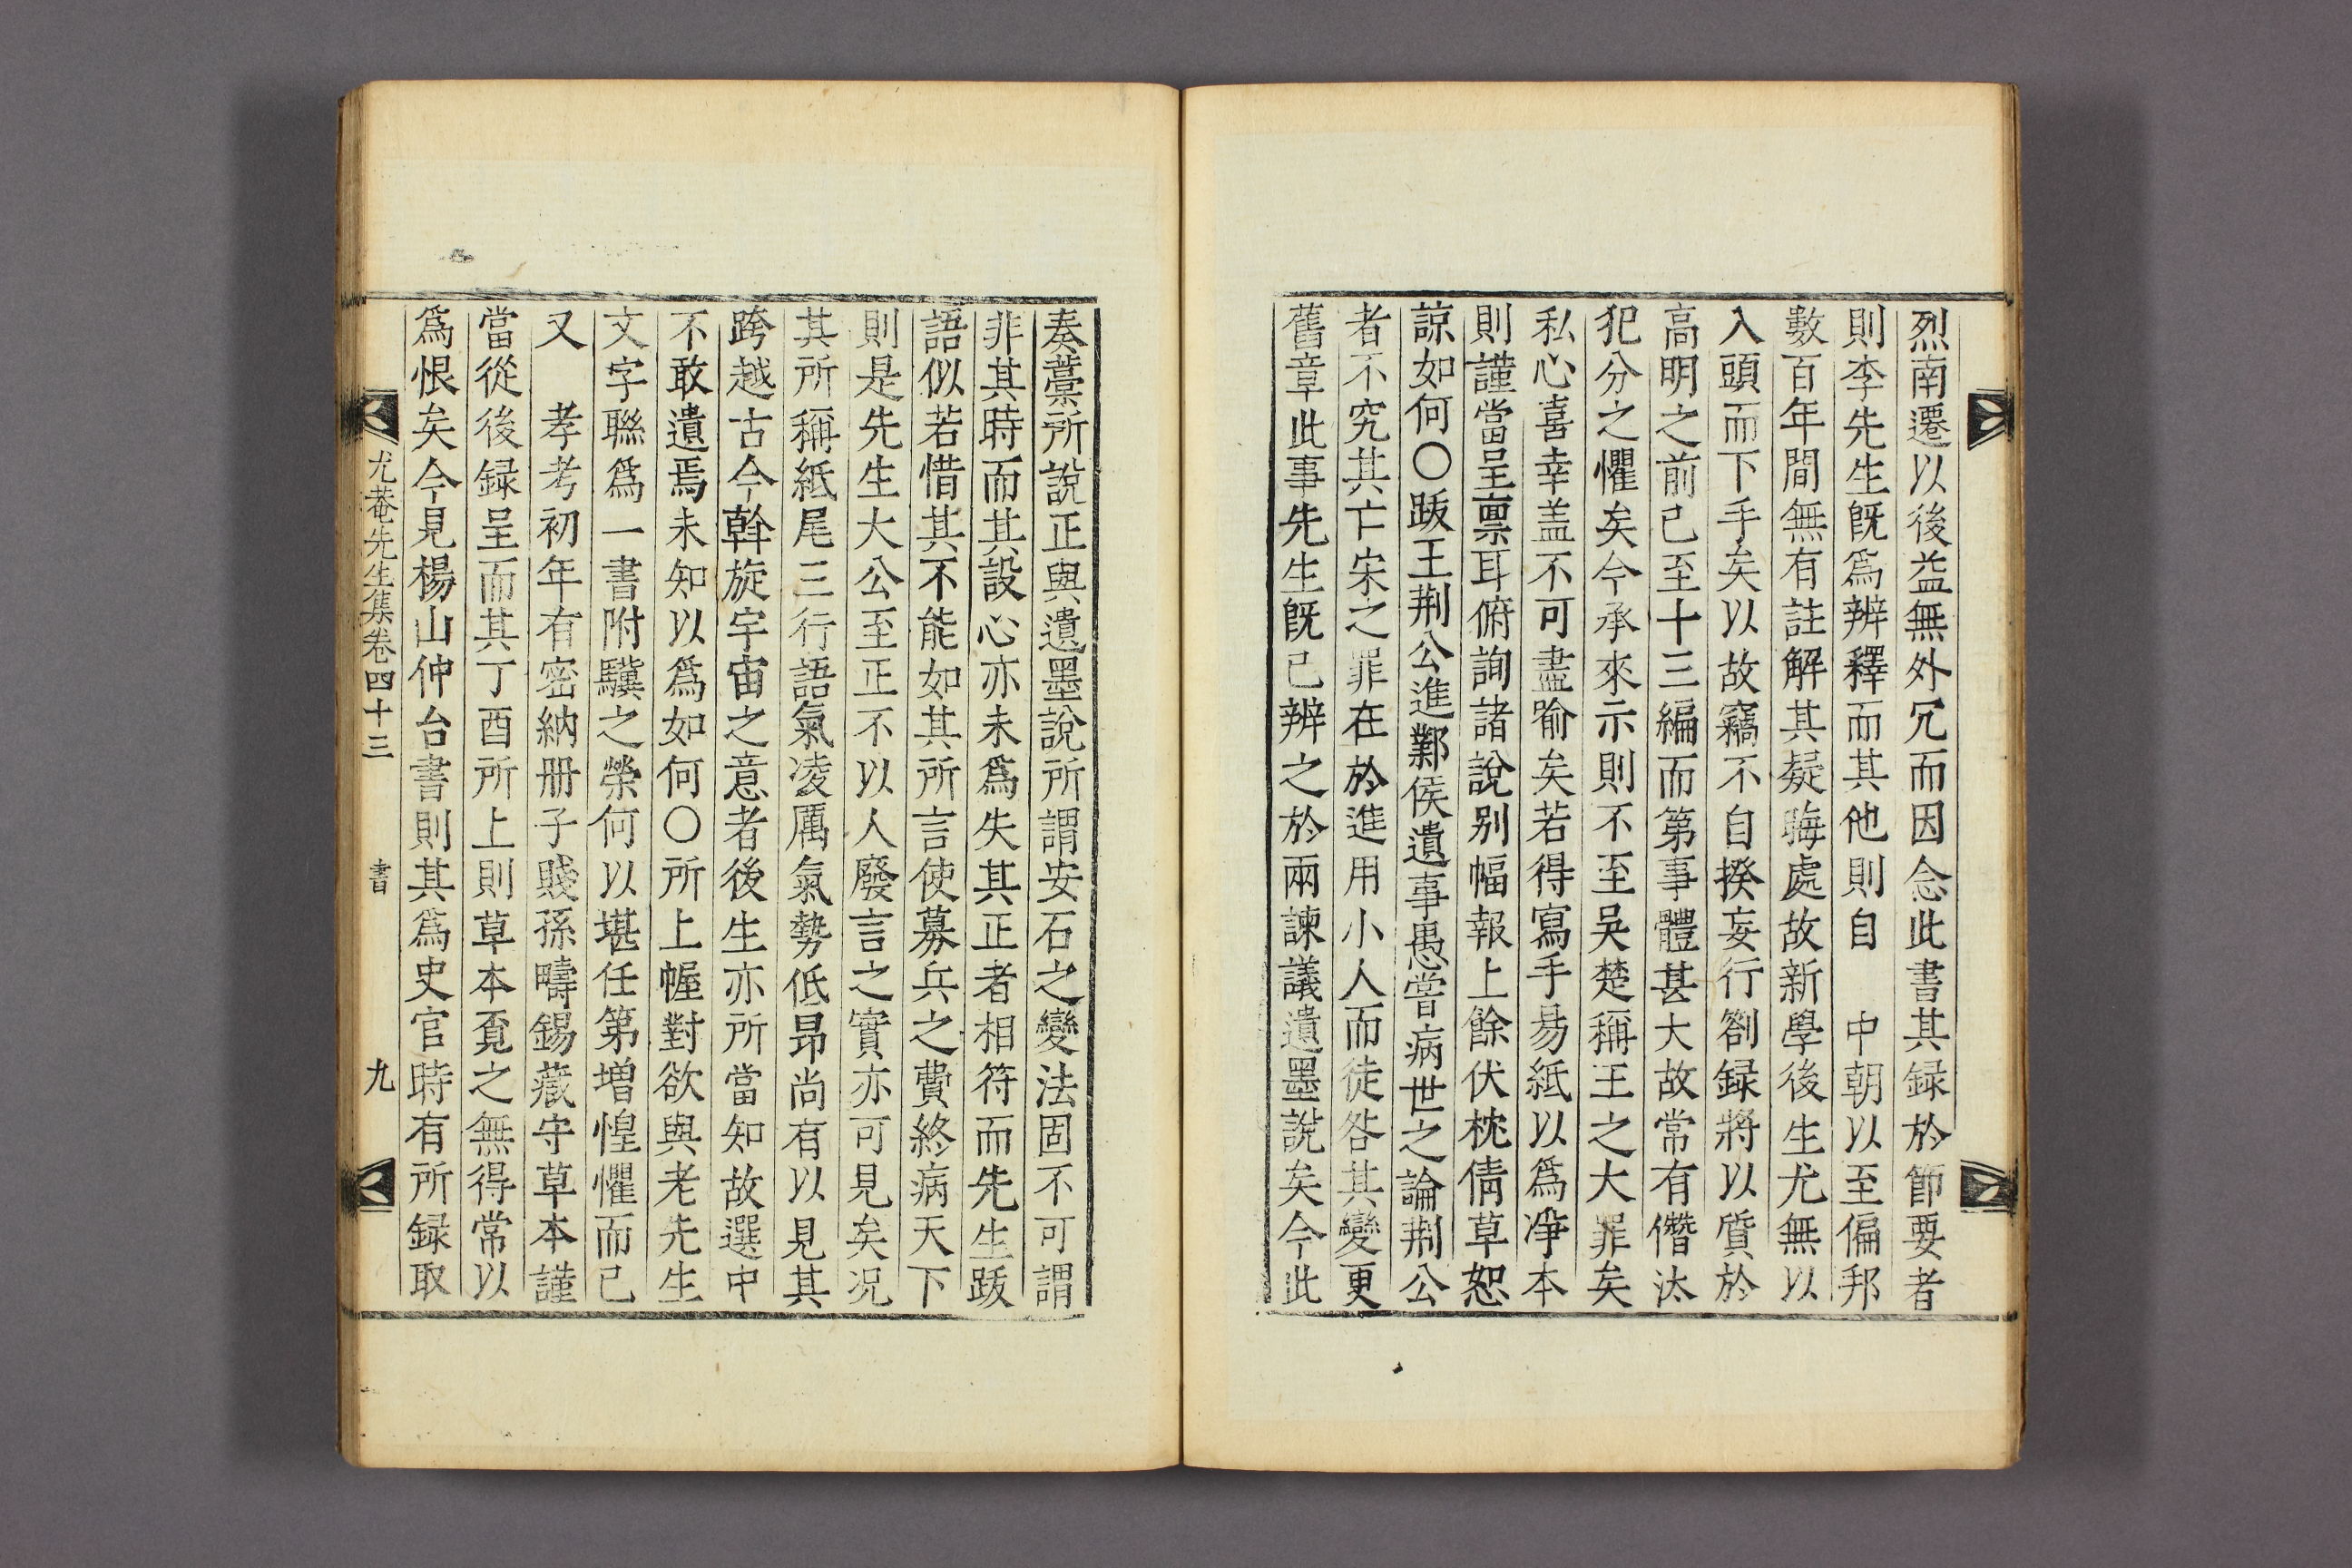 烈南遷以後益無外冗而因念此書其録於節要者
則李先生既爲辨釋而其他則自 中朝以至偏邦
數百年間無有註解其疑晦處故新學後生尤無以
入頭而下手矣以故竊不自揆妄行劄録將以質於
高明之前已至十三編而第事體甚大故常有僭汰
犯分之懼矣今承來示則不至吴楚稱王之大罪矣
私心喜幸盖不可盡喻矣若得寫手易紙以爲净本
則謹當呈禀耳俯詢諸說别幅報上餘伏枕倩草恕
諒如何〇跋王荆公進鄴侯遺事愚嘗病世之論荆公
者不究其亡宋之罪在於進用小人而徒咎其變更
舊章此事先生既已辨之於兩諫議遺墨說矣今此
奏藁所說正與遺墨說所謂安石之變法固不可謂
非其時而其設心亦未爲失其正者相符而先生跋
語似若惜其不能如其所言使募兵之費終病天下
則是先生大公至正不以人廢言之實亦可見矣况
其所稱紙尾三行語氣凌厲氣勢低昂尚有以見其
跨越古今斡旋宇宙之意者後生亦所當知故選中
不敢遺焉未知以爲如何〇所上幄對欲與老先生
文字聯爲一書附驥之榮何以堪任第増惶懼而已
又 孝考初年有密納册子賤孫疇錫藏守草本謹
當從後録呈而其丁酉所上則草本覔之無得常以
爲恨矣今見楊山仲台書則其爲史官時有所録取
尤菴先生集卷四十三 書 九